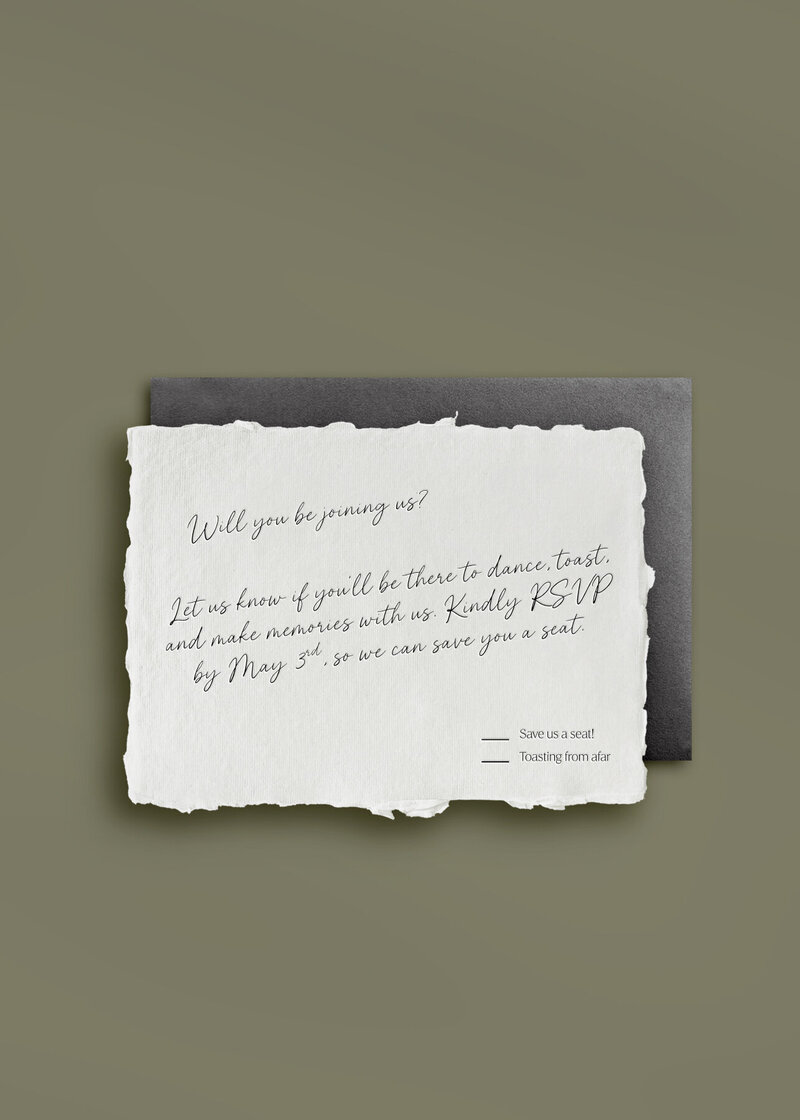 Will you be joining us?
Let us know if you'll be there to dance, toast,
and make memories with us. Kindly RSVP
by May 3rd, so we can save you a seat.
___ Save us a seat!
___ Toasting from afar